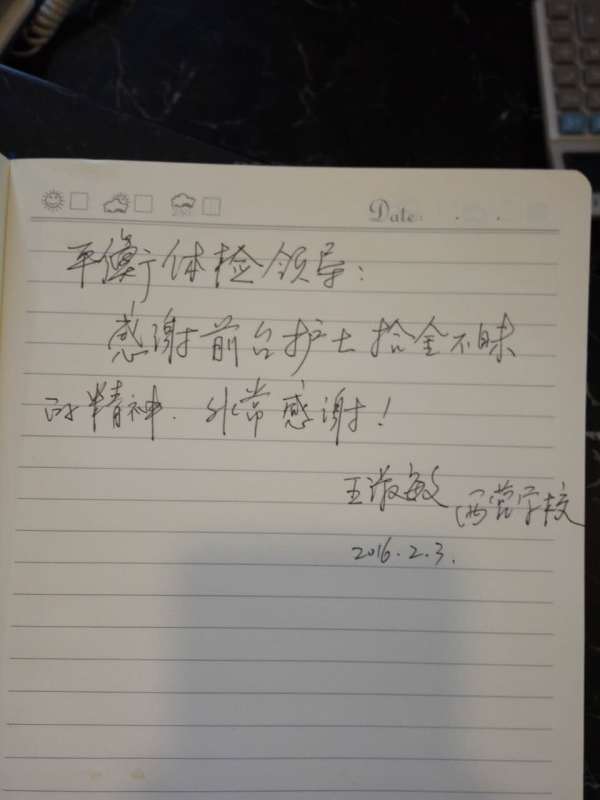 Date:
平衡体检领导:
感谢前台护士拾金不昧
的精神. 非常感谢!
王淑敏 西营学校
2016.2.3.